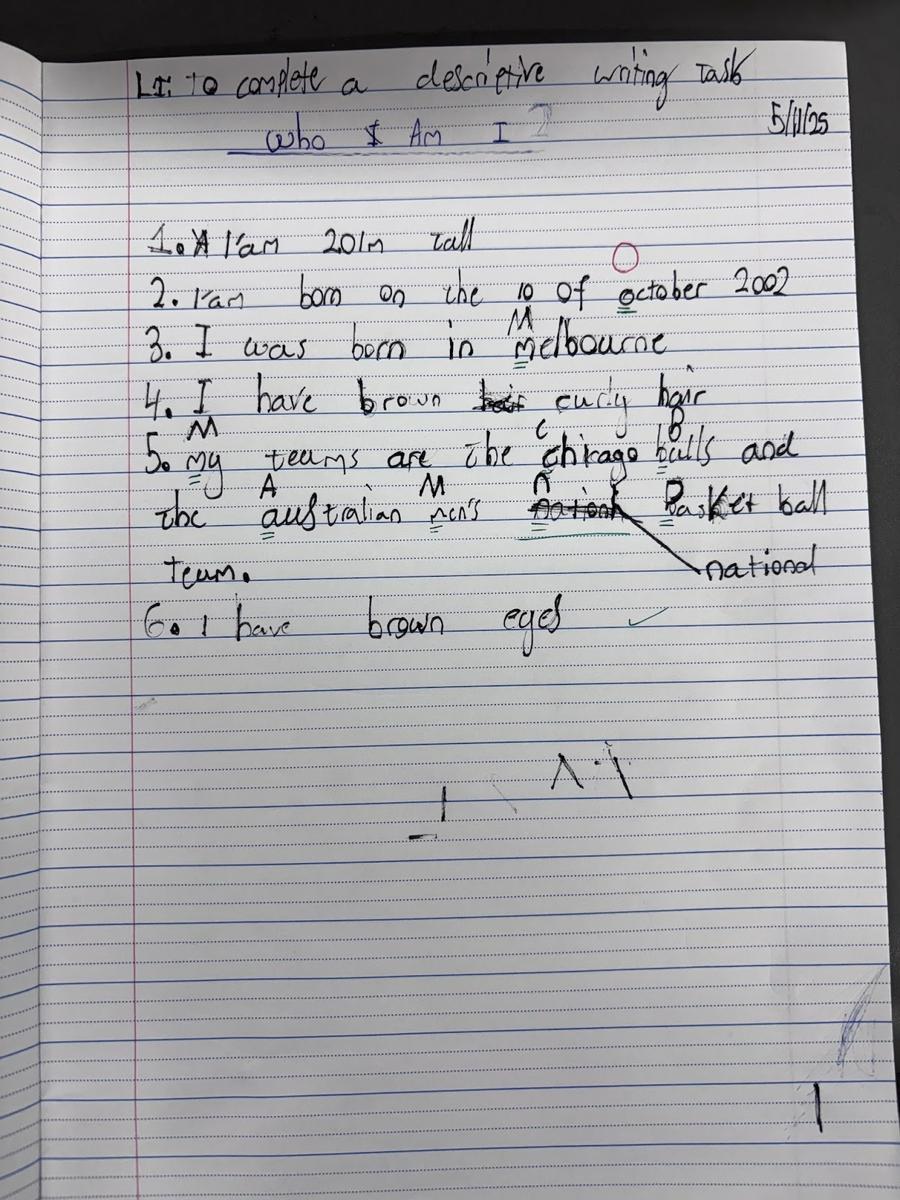 LI: To complete a descriptive writing Task
Who Am I ?
5/11/25
1. I'am 201m tall
O
2. I'am born on the 10 of october 2002
M
3. I was born in melbourne
4. I have brown curly hair
M C B
5. my teams are the chicago bulls and
A M n
the australian men's Basket ball
team.
national
6. I have brown eyes